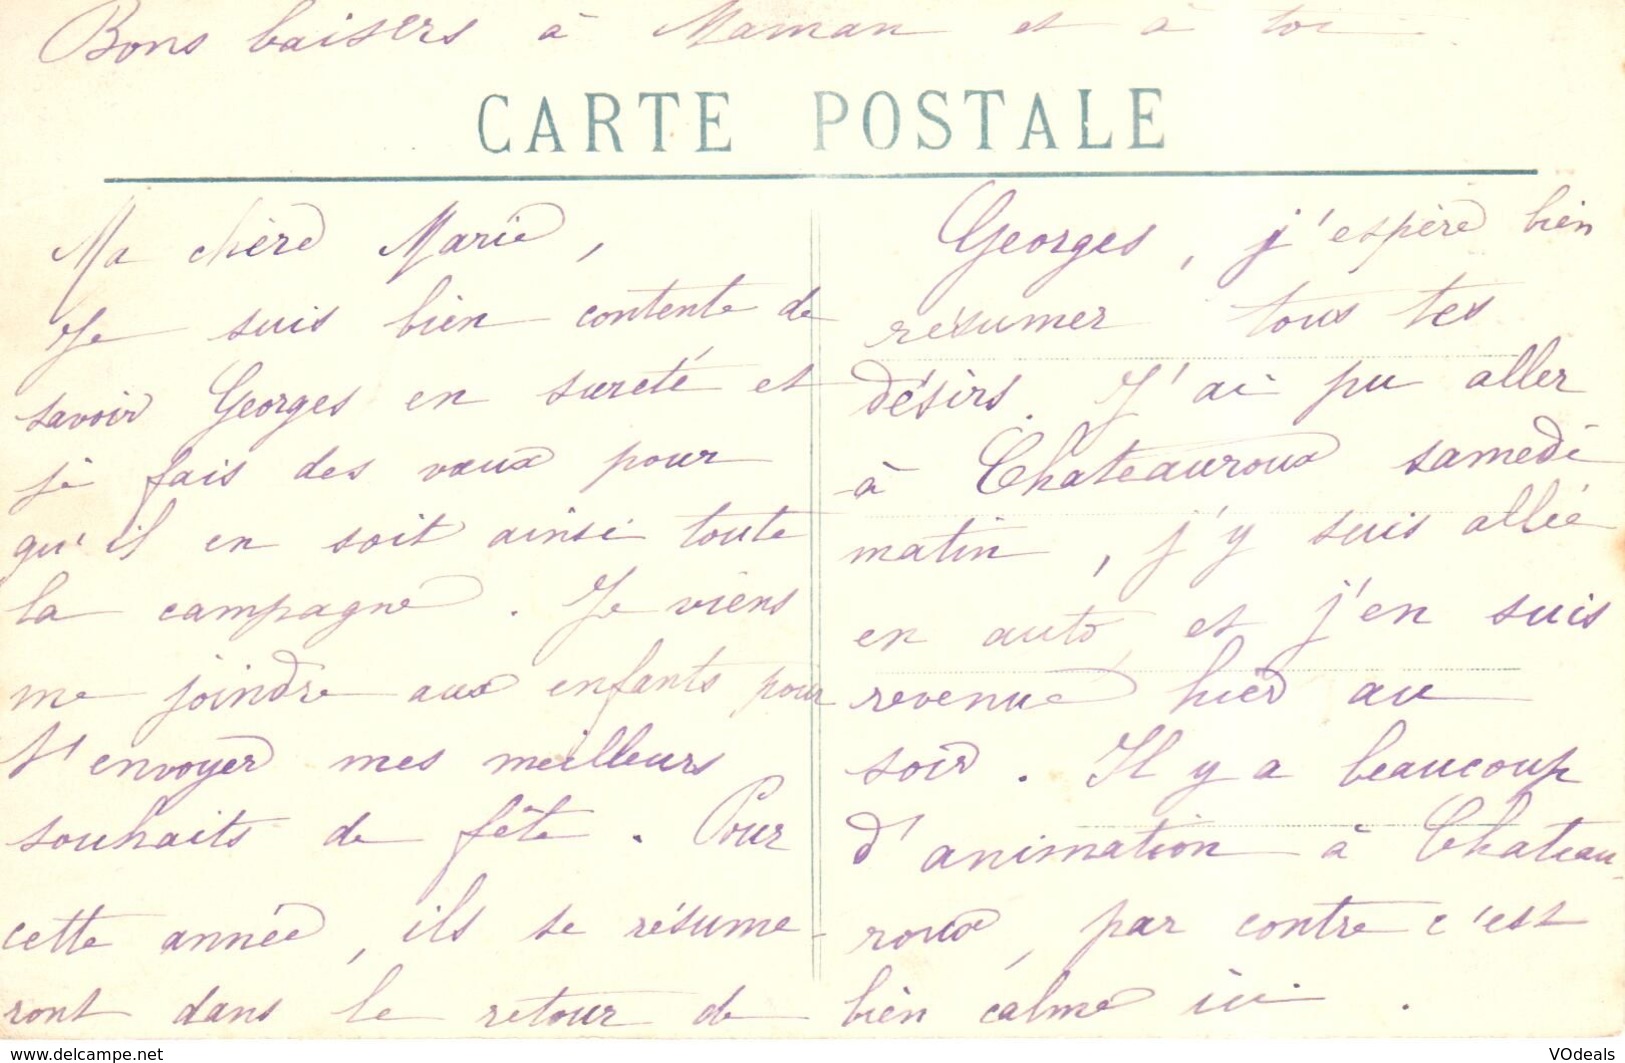 Bons baisers à Maman et à toi
CARTE POSTALE
Ma chère Marie,
Je suis bien contente de
savoir Georges en sureté et
je fais des vœux pour
qu'il en soit ainsi toute
la campagne. Je viens
me joindre aux enfants pour
t'envoyer mes meilleurs
souhaits de fête. Pour
cette année, ils se résume-
ront dans le retour de
Georges, j'espère bien
résumer tous tes
désirs. J'ai pu aller
à Chateauroux samedi
matin, j'y suis allée
en auto, et j'en suis
revenue hier au
soir. Il y a beaucoup
d'animation à Chateau-
roux, par contre c'est
bien calme ici.
www.delcampe.net
VOdeals